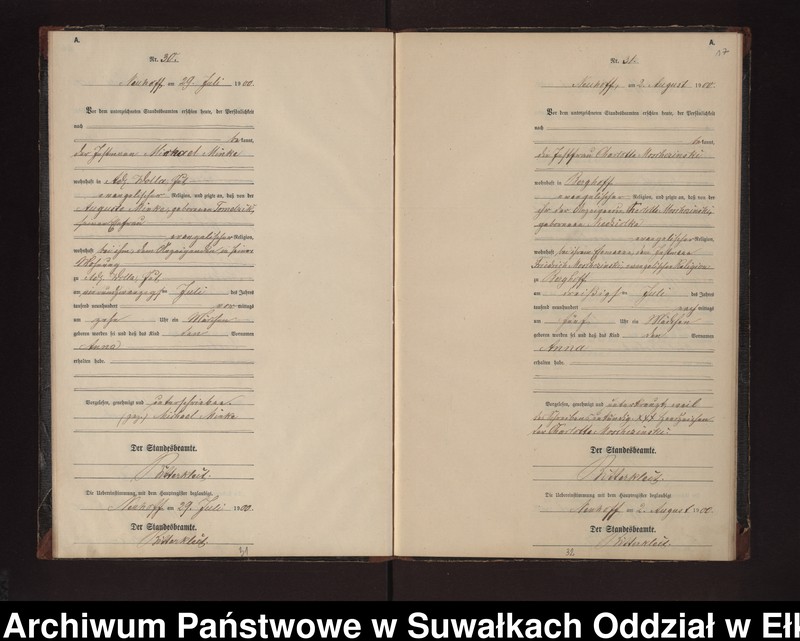 A.
Nr. 30.
Neuhoff am 29 Juli 1900.
Vor dem unterzeichneten Standesbeamten erschien heute, der Persönlichkeit
nach
bekannt,
der Michael Minka
wohnhaft in Adl. Wolla
evangelischer Religion, und zeigte an, daß von der
Auguste Minka, geborenen
seiner Ehefrau
evangelischer Religion,
wohnhaft bei ihm, dem Anzeigenden in seiner
Wohnung
zu Adl. Wolla
am Juli des Jahres
tausend neunhundert vormittags
um zehn Uhr ein Mädchen
geboren worden sei und daß das Kind den Vornamen
Anna
erhalten habe.
Vorgelesen, genehmigt und unterschrieben.
(gez.) Michael Minka
Der Standesbeamte.
Die Uebereinstimmung mit dem Hauptregister beglaubigt
Neuhoff am 29. Juli 1900.
Der Standesbeamte.
31
A.
Nr. 31.
Neuhoff, am 2. August 1900.
Vor dem unterzeichneten Standesbeamten erschien heute, der Persönlichkeit
nach
bekannt,
die Charlotte
wohnhaft in Berghoff
evangelischer Religion, und zeigte an, daß von der
ihr der Anzeigerin, Charlotte
geborenen
evangelischer Religion,
wohnhaft bei ihrem Ehemann, dem
Friedrich evangelischer Religion
zu Berghoff
am dreißigsten Juli des Jahres
tausend neunhundert nachmittags
um fünf Uhr ein Mädchen
geboren worden sei und daß das Kind den Vornamen
Anna
erhalten habe.
Vorgelesen, genehmigt und unterkreuzt, weil
des Schreibens unkundig. xxx Handzeichen
der Charlotte
Der Standesbeamte.
Die Uebereinstimmung mit dem Hauptregister beglaubigt
Neuhoff am 2. August 1900.
Der Standesbeamte.
Archiwum Państwowe w Suwałkach Oddział w Eł